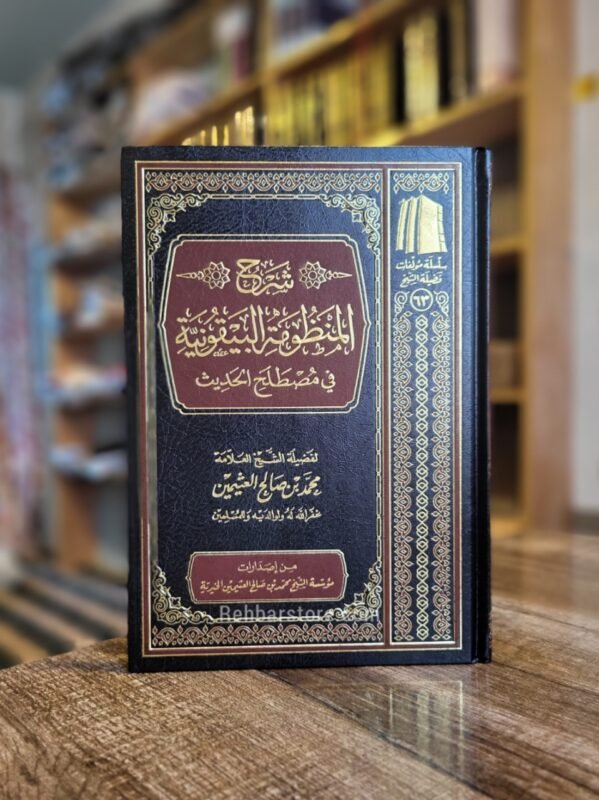 شرح
المنظومة البيقونية
في مصطلح الحديث
لفضيلة الشيخ العلامة
محمد بن صالح العثيمين
غفر الله له ولوالديه وللمسلمين
من إصدارات
مؤسسة الشيخ محمد بن صالح العثيمين الخيرية
سلسلة مؤلفات
فضيلة الشيخ
٦٣
Rehbarstore